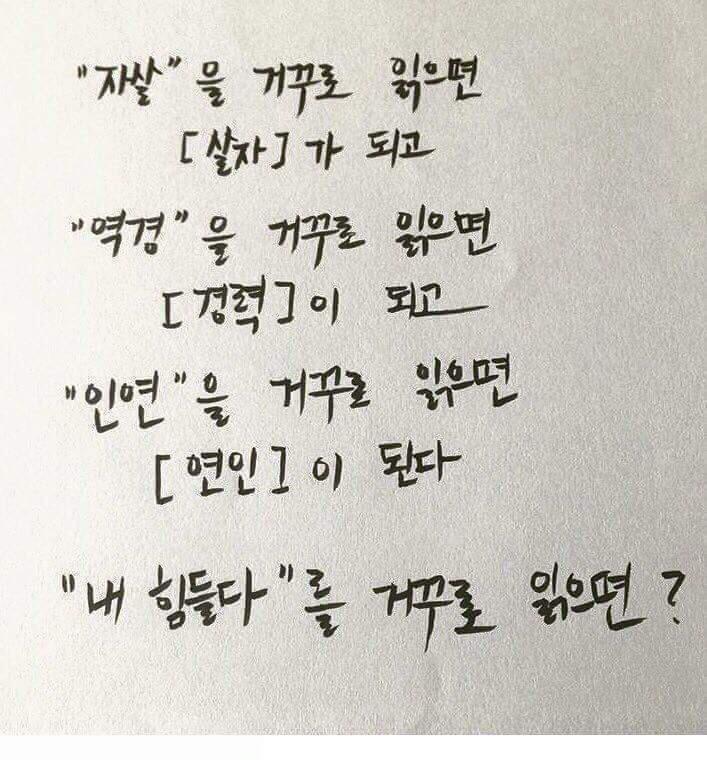 "자살"을 거꾸로 읽으면
[살자]가 되고
"역경"을 거꾸로 읽으면
[경력]이 되고
"인연"을 거꾸로 읽으면
[연인]이 된다
"내 힘들다"를 거꾸로 읽으면?